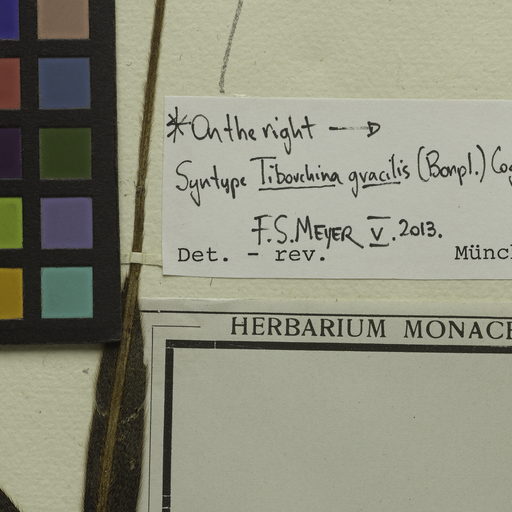 *On the right →
Syntype Tibouchina gracilis (Bonpl.) Cog
F.S. MEYER V. 2013.
Det. - rev. Münc
HERBARIUM MONACE